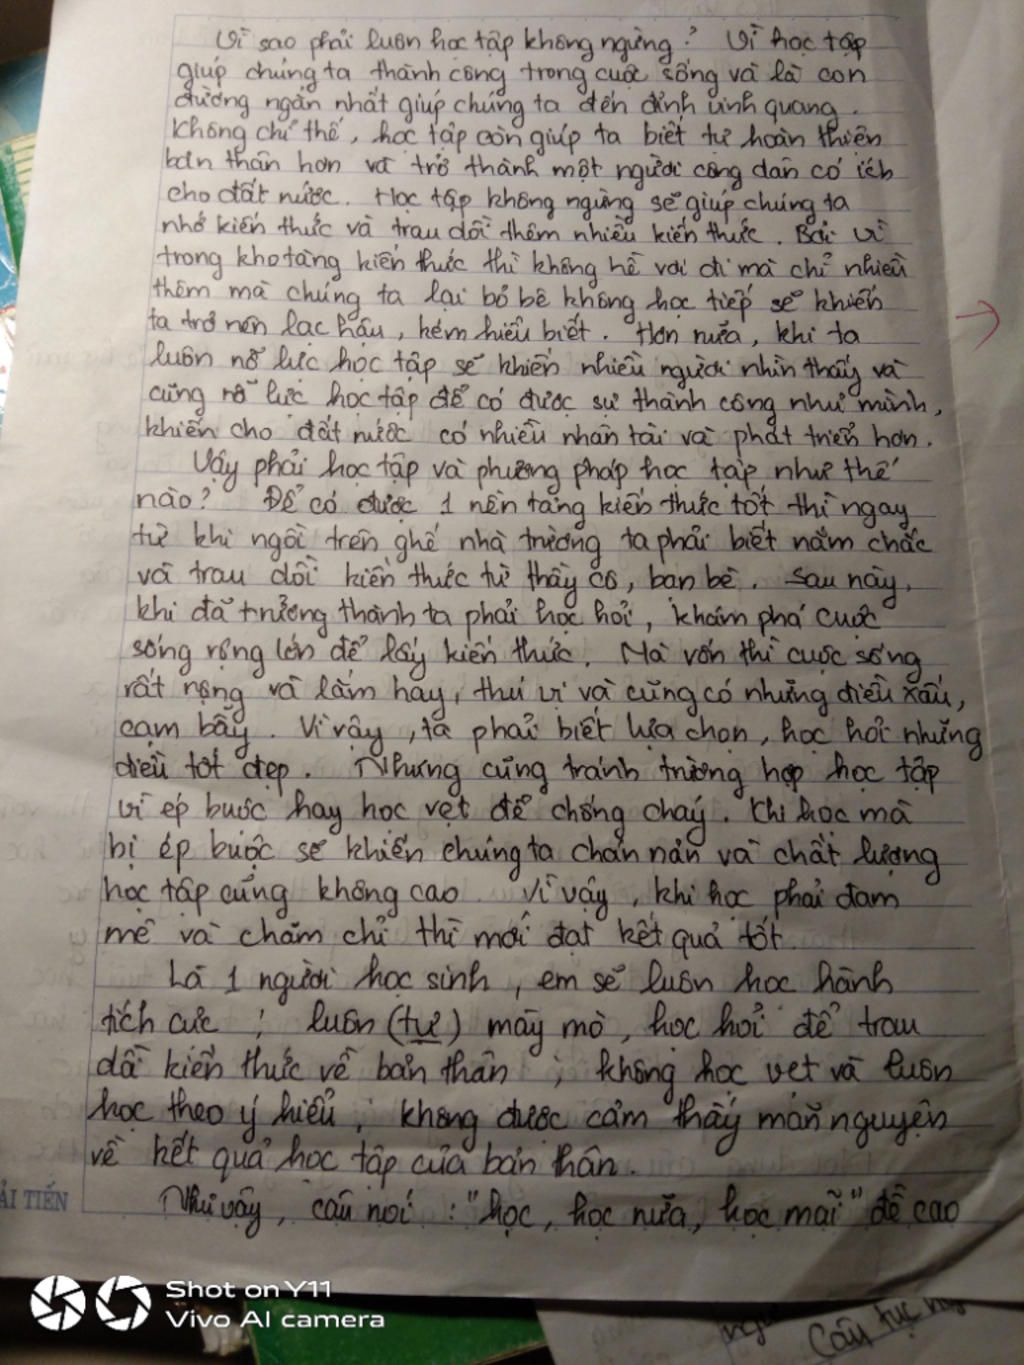 Vì sao phải luôn học tập không ngừng? Vì học tập
giúp chúng ta thành công trong cuộc sống và là con
đường ngắn nhất giúp chúng ta đến đỉnh vinh quang.
Không chỉ thế, học tập còn giúp ta biết tự hoàn thiện
bản thân hơn và trở thành một người công dân có ích
cho đất nước. Học tập không ngừng sẽ giúp chúng ta
nhớ kiến thức và trau dồi thêm nhiều kiến thức. Bởi vì
trong kho tàng kiến thức thì không hề vơi đi mà chỉ nhiều
thêm mà chúng ta lại bỏ bê không học tiếp sẽ khiến
ta trở nên lạc hậu, kém hiểu biết. Hơn nữa, khi ta
luôn nỗ lực học tập sẽ khiến nhiều người nhìn thấy và
cũng nỗ lực học tập để có được sự thành công như mình,
khiến cho đất nước có nhiều nhân tài và phát triển hơn.
Vậy phải học tập và phương pháp học tập như thế
nào? Để có được 1 nền tảng kiến thức tốt thì ngay
từ khi ngồi trên ghế nhà trường ta phải biết nắm chắc
và trau dồi kiến thức từ thầy cô, bạn bè. Sau này,
khi đã trưởng thành ta phải học hỏi, khám phá cuộc
sống rộng lớn để lấy kiến thức. Mà vốn thì cuộc sống
rất rộng và lắm hay, thú vị và cũng có những điều xấu,
cạm bẫy. Vì vậy, ta phải biết lựa chọn, học hỏi những
điều tốt đẹp. Nhưng cũng tránh trường hợp học tập
vì ép buộc hay học vẹt để chống cháy. Khi học mà
bị ép buộc sẽ khiến chúng ta chán nản và chất lượng
học tập cũng không cao. Vì vậy, khi học phải đam
mê và chăm chỉ thì mới đạt kết quả tốt.
Là 1 người học sinh, em sẽ luôn học hành
tích cực ; luôn (tự) mày mò, học hỏi để trau
dồi kiến thức về bản thân ; không học vẹt và luôn
học theo ý hiểu ; không được cảm thấy mãn nguyện
về kết quả học tập của bản thân.
ẢI TIẾN
Như vậy, câu nói : "học, học nữa, học mãi" đề cao
Shot on Y11
Vivo AI camera
Câu tục